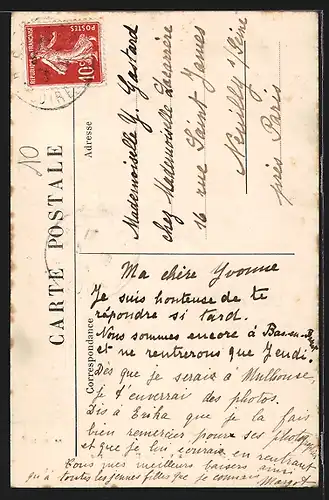 10
REPUBLIQUE FRANÇAISE
POSTES
10c
CARTE POSTALE
Adresse
Correspondance
Mademoiselle Y. Gastard
chez Mademoiselle
16 rue Saint James
Neuilly s/Seine
près Paris
Ma chère Yvonne
Je suis honteuse de te
répondre si tard.
Nous sommes encore à
et ne rentrerons que Jeudi.
Dès que je serais à Mulhouse,
je t'enverrai des photos.
Dis à Erika que je la fais
bien remercier pour ses photographies
et que je lui écrirais en rentrant
Tous mes meilleurs baisers ainsi
qu'à toutes les jeunes filles que je connais
Margot